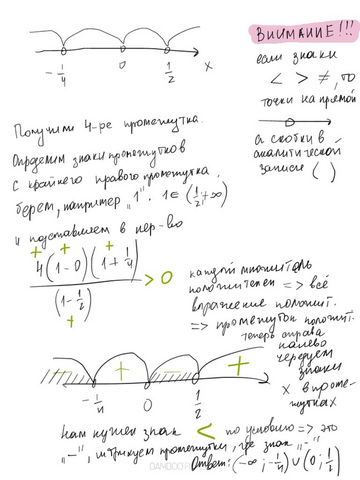 ВНИМАНИЕ!!!
если знаки
< > ≠, то
точки на прямой
а скобки в
аналитической
записи ( )
-1/4 0 1/2 x
Получили 4-ре промежутка.
Определим знаки промежутков
с крайнего правого промежутка,
берем, например "1". 1∈(1/2;+∞)
и подставляем в нер-во
+ + +
4(1-0)(1+1/4)
(1-1/2) > 0
+
каждый множитель
положителен => всё
выражение положит.
=> промежуток положит.
теперь справа
налево
чередуем
знаки
x в проме-
жутках
- + - +
-1/4 0 1/2
нам нужен знак < по условию => это
"-", штрихуем промежутки, где знак "-"
Ответ: (-∞;-1/4)∪(0;1/2)